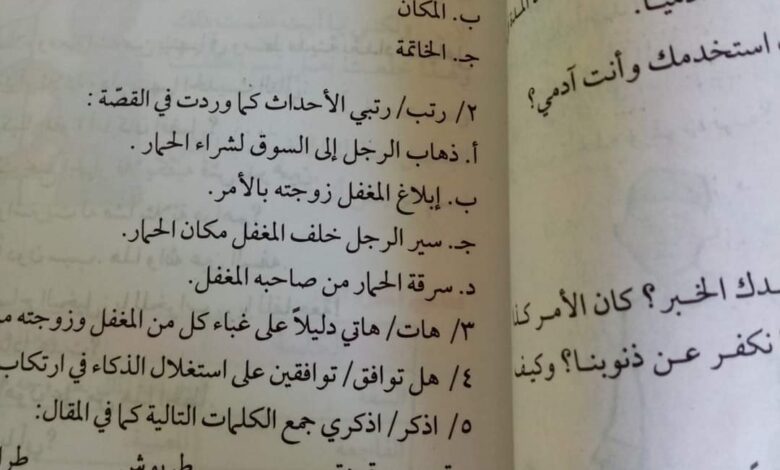 ب. المكان
جـ. الخاتمة
٢/ رتب/ رتبي الأحداث كما وردت في القصّة :
أ. ذهاب الرجل إلى السوق لشراء الحمار .
ب. إبلاغ المغفل زوجته بالأمر.
جـ. سير الرجل خلف المغفل مكان الحمار.
د. سرقة الحمار من صاحبه المغفل.
٣/ هات/ هاتي دليلاً على غباء كل من المغفل وزوجته
٤/ هل توافق/ توافقين على استغلال الذكاء في ارتكاب
٥/ اذكر/ اذكري جمع الكلمات التالية كما في المقال:
استخدمك وأنت آدمي؟
الخبر؟ كان الأمر
نكفر عن ذنوبنا؟